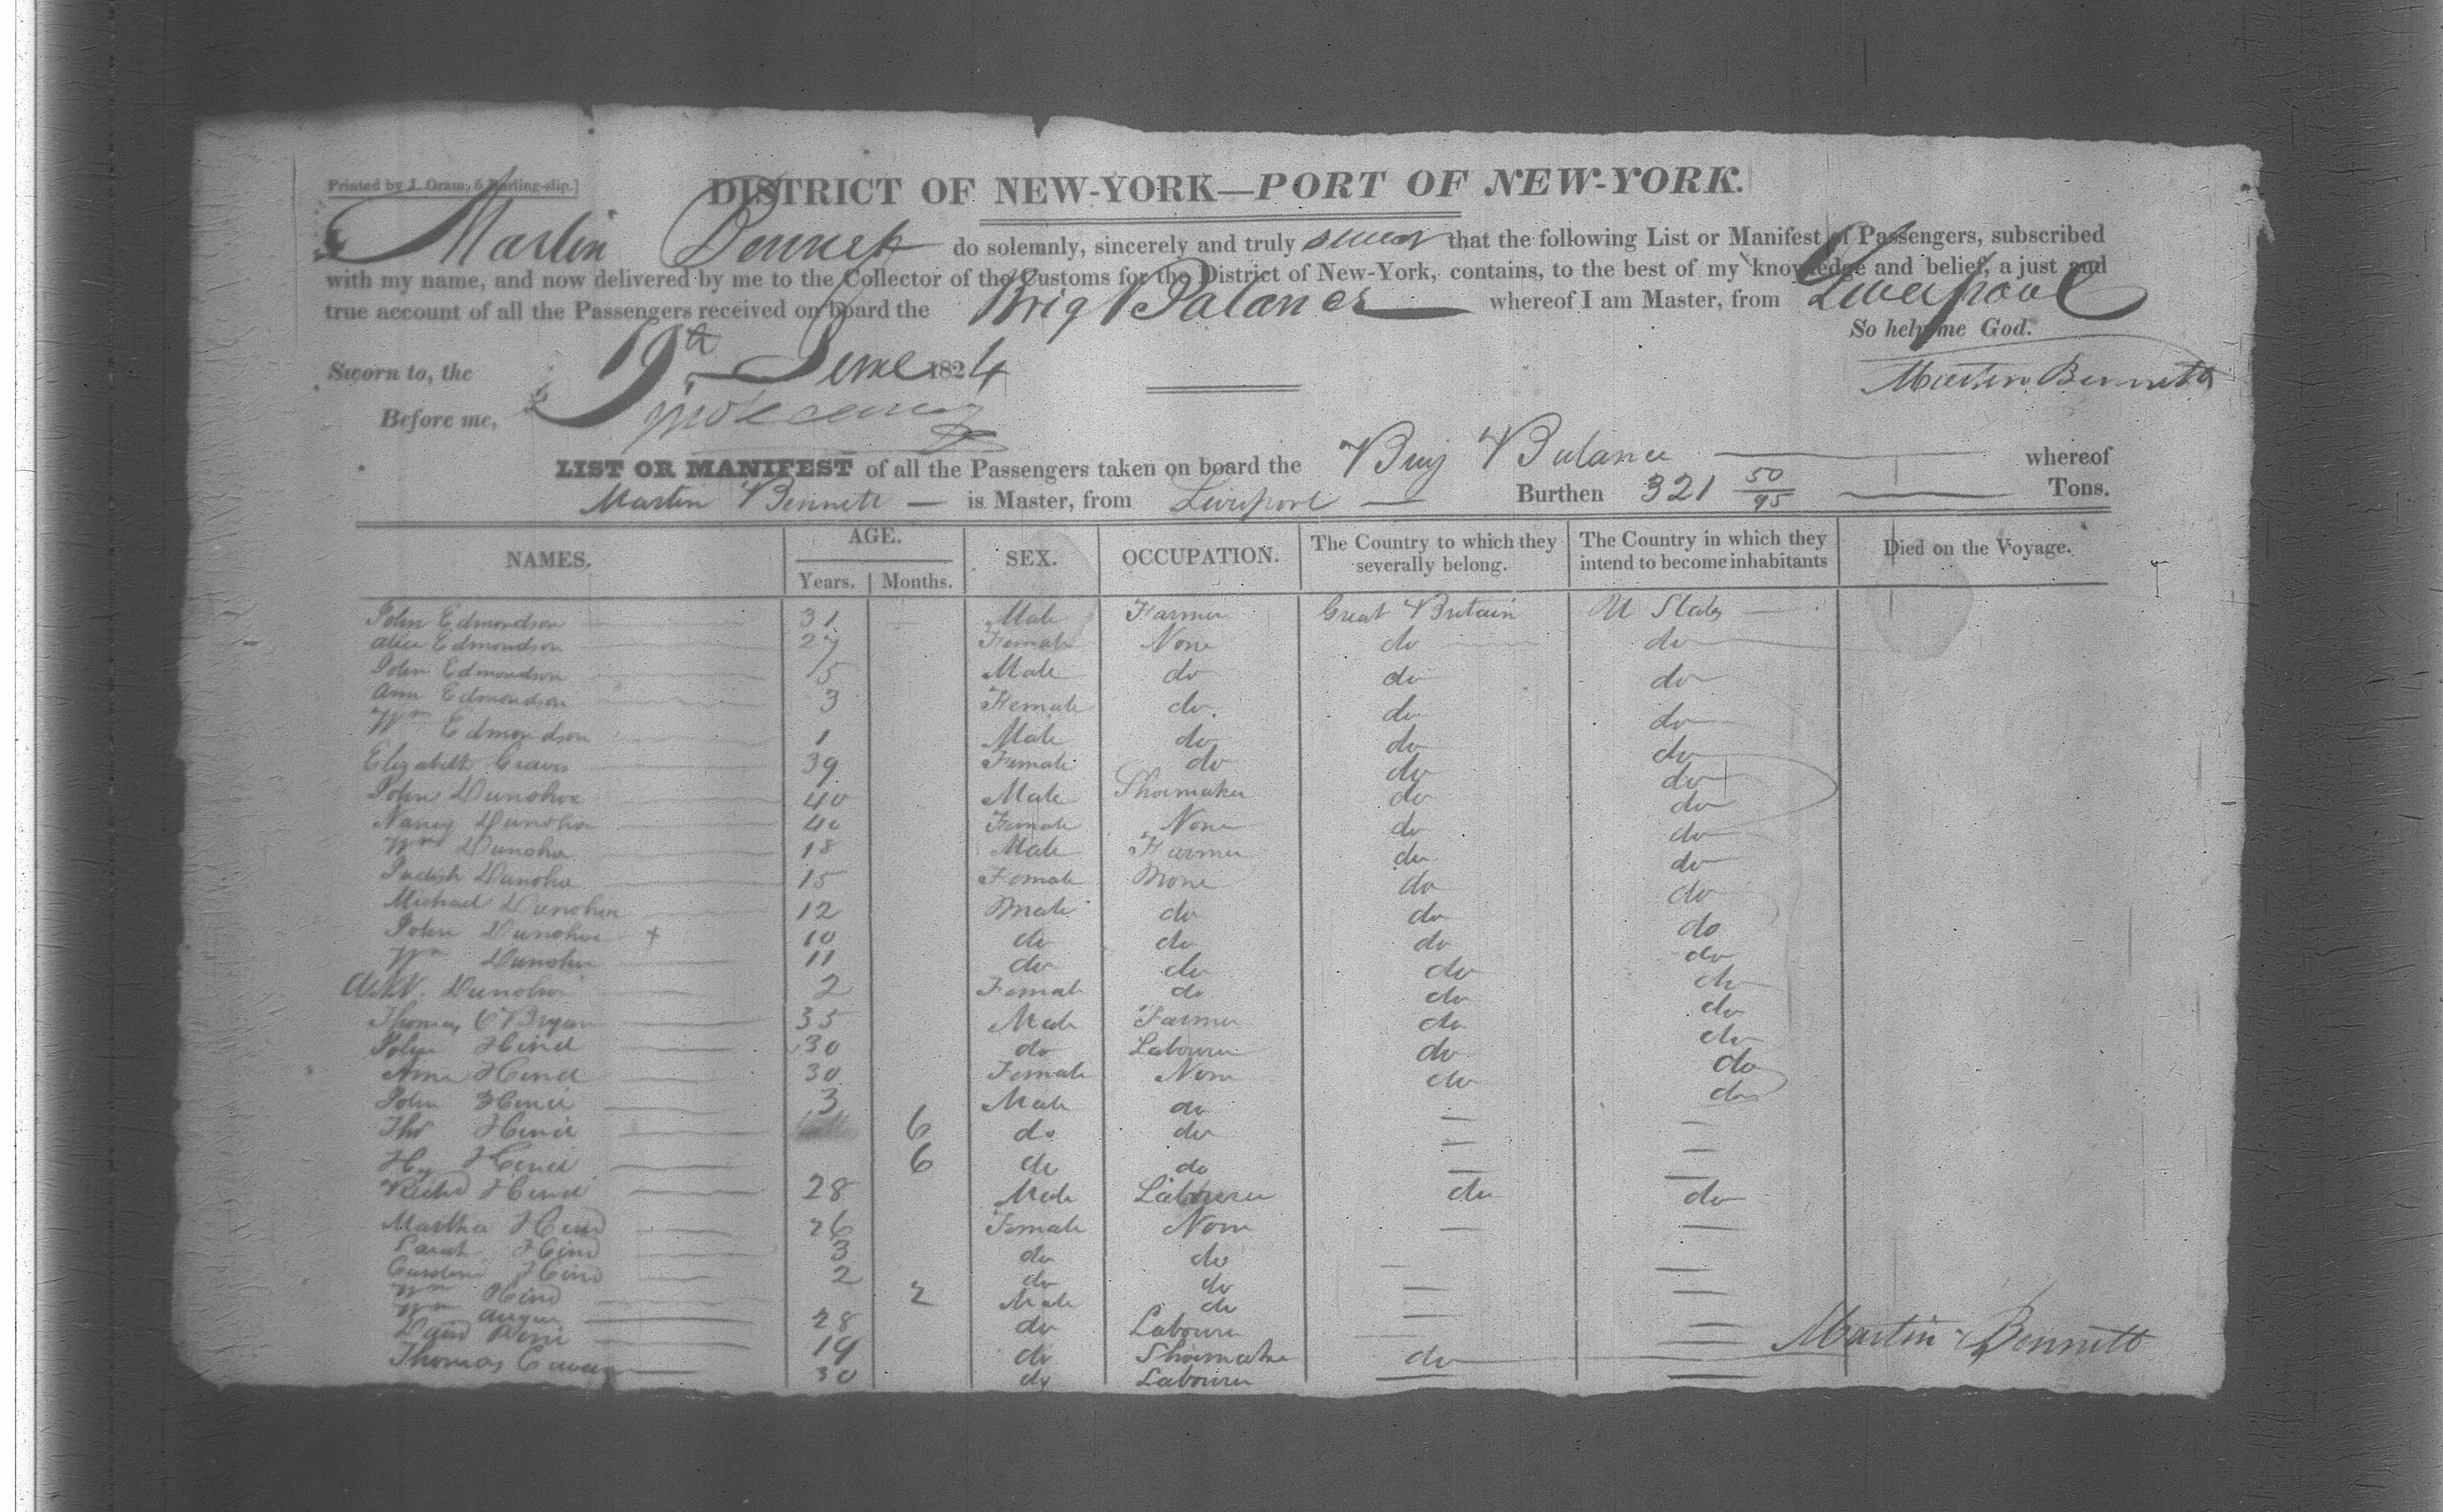 Printed by J. Oram, 6 Burling-slip.]
DISTRICT OF NEW-YORK—PORT OF NEW-YORK.
Martin Bennett do solemnly, sincerely and truly swear that the following List or Manifest of Passengers, subscribed
with my name, and now delivered by me to the Collector of the Customs for the District of New-York, contains, to the best of my knowledge and belief, a just and
true account of all the Passengers received on board the Brig Balance whereof I am Master, from Liverpool
So help me God.
Sworn to, the 19th June 1824
Martin Bennett
Before me,
LIST OR MANIFEST of all the Passengers taken on board the Brig Balance whereof
Martin Bennett is Master, from Liverpool Burthen 321 50/95 Tons.
NAMES. AGE. Years. Months. SEX. OCCUPATION. The Country to which they severally belong. The Country in which they intend to become inhabitants Died on the Voyage.
John Edmondson 31 Male Farmer Great Britain U States
Alice Edmondson 27 Female None do do
John Edmondson 5 Male do do do
Ann Edmondson 3 Female do do do
Wm Edmondson 1 Male do do do
Elizabeth 39 Female do do do
John Dunohoe 40 Male Shoemaker do do
Nancy Dunohoe 40 Female None do do
Wm Dunohoe 18 Male Farmer do do
Judith Dunohoe 15 Female None do do
Michael Dunohoe 12 Male do do do
John Dunohoe + 10 do do do do
Wm Dunohoe 11 do do do do
Dunohoe 2 Female do do do
Thomas O'Bryan 35 Male Farmer do do
John Hind 30 do Labourer do do
Ann Hind 30 Female None do do
John Hind 3 Male do — —
Thos Hind 6 do do — —
Hy Hind 6 do do — —
Richd Hind 28 Male Labourer do do
Martha Hind 26 Female None — —
Sarah Hind 3 do do — —
Caroline Hind 2 do do — —
Wm Hind 2 Male do — —
Wm 28 do Labourer — —
David 19 do Shoemaker do —
Thomas 30 do Labourer — —
Martin Bennett